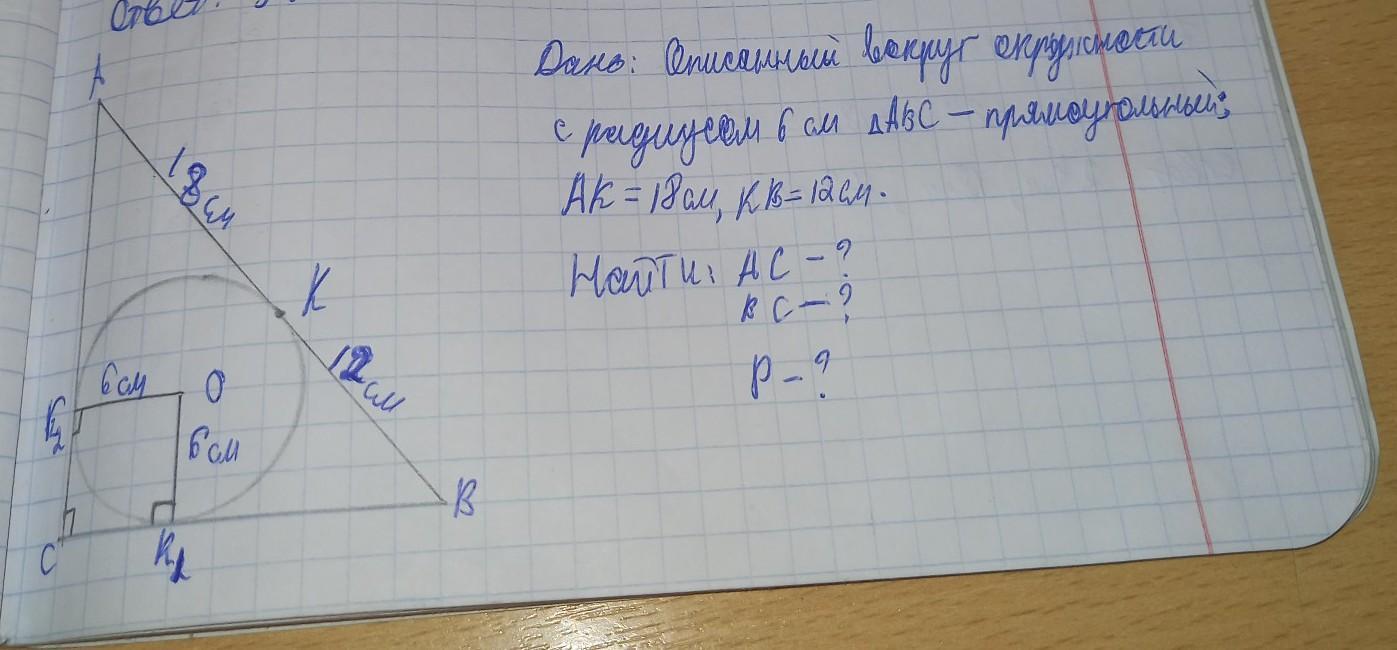 Ответ:
Дано: Описанный вокруг окружности
с радиусом 6 см ΔABC – прямоугольный;
AK = 18см, KB = 12см.
Найти: AC – ?
BC – ?
P – ?
A
18 см
K
12 см
6 см
O
K₂
6 см
B
C
K₁